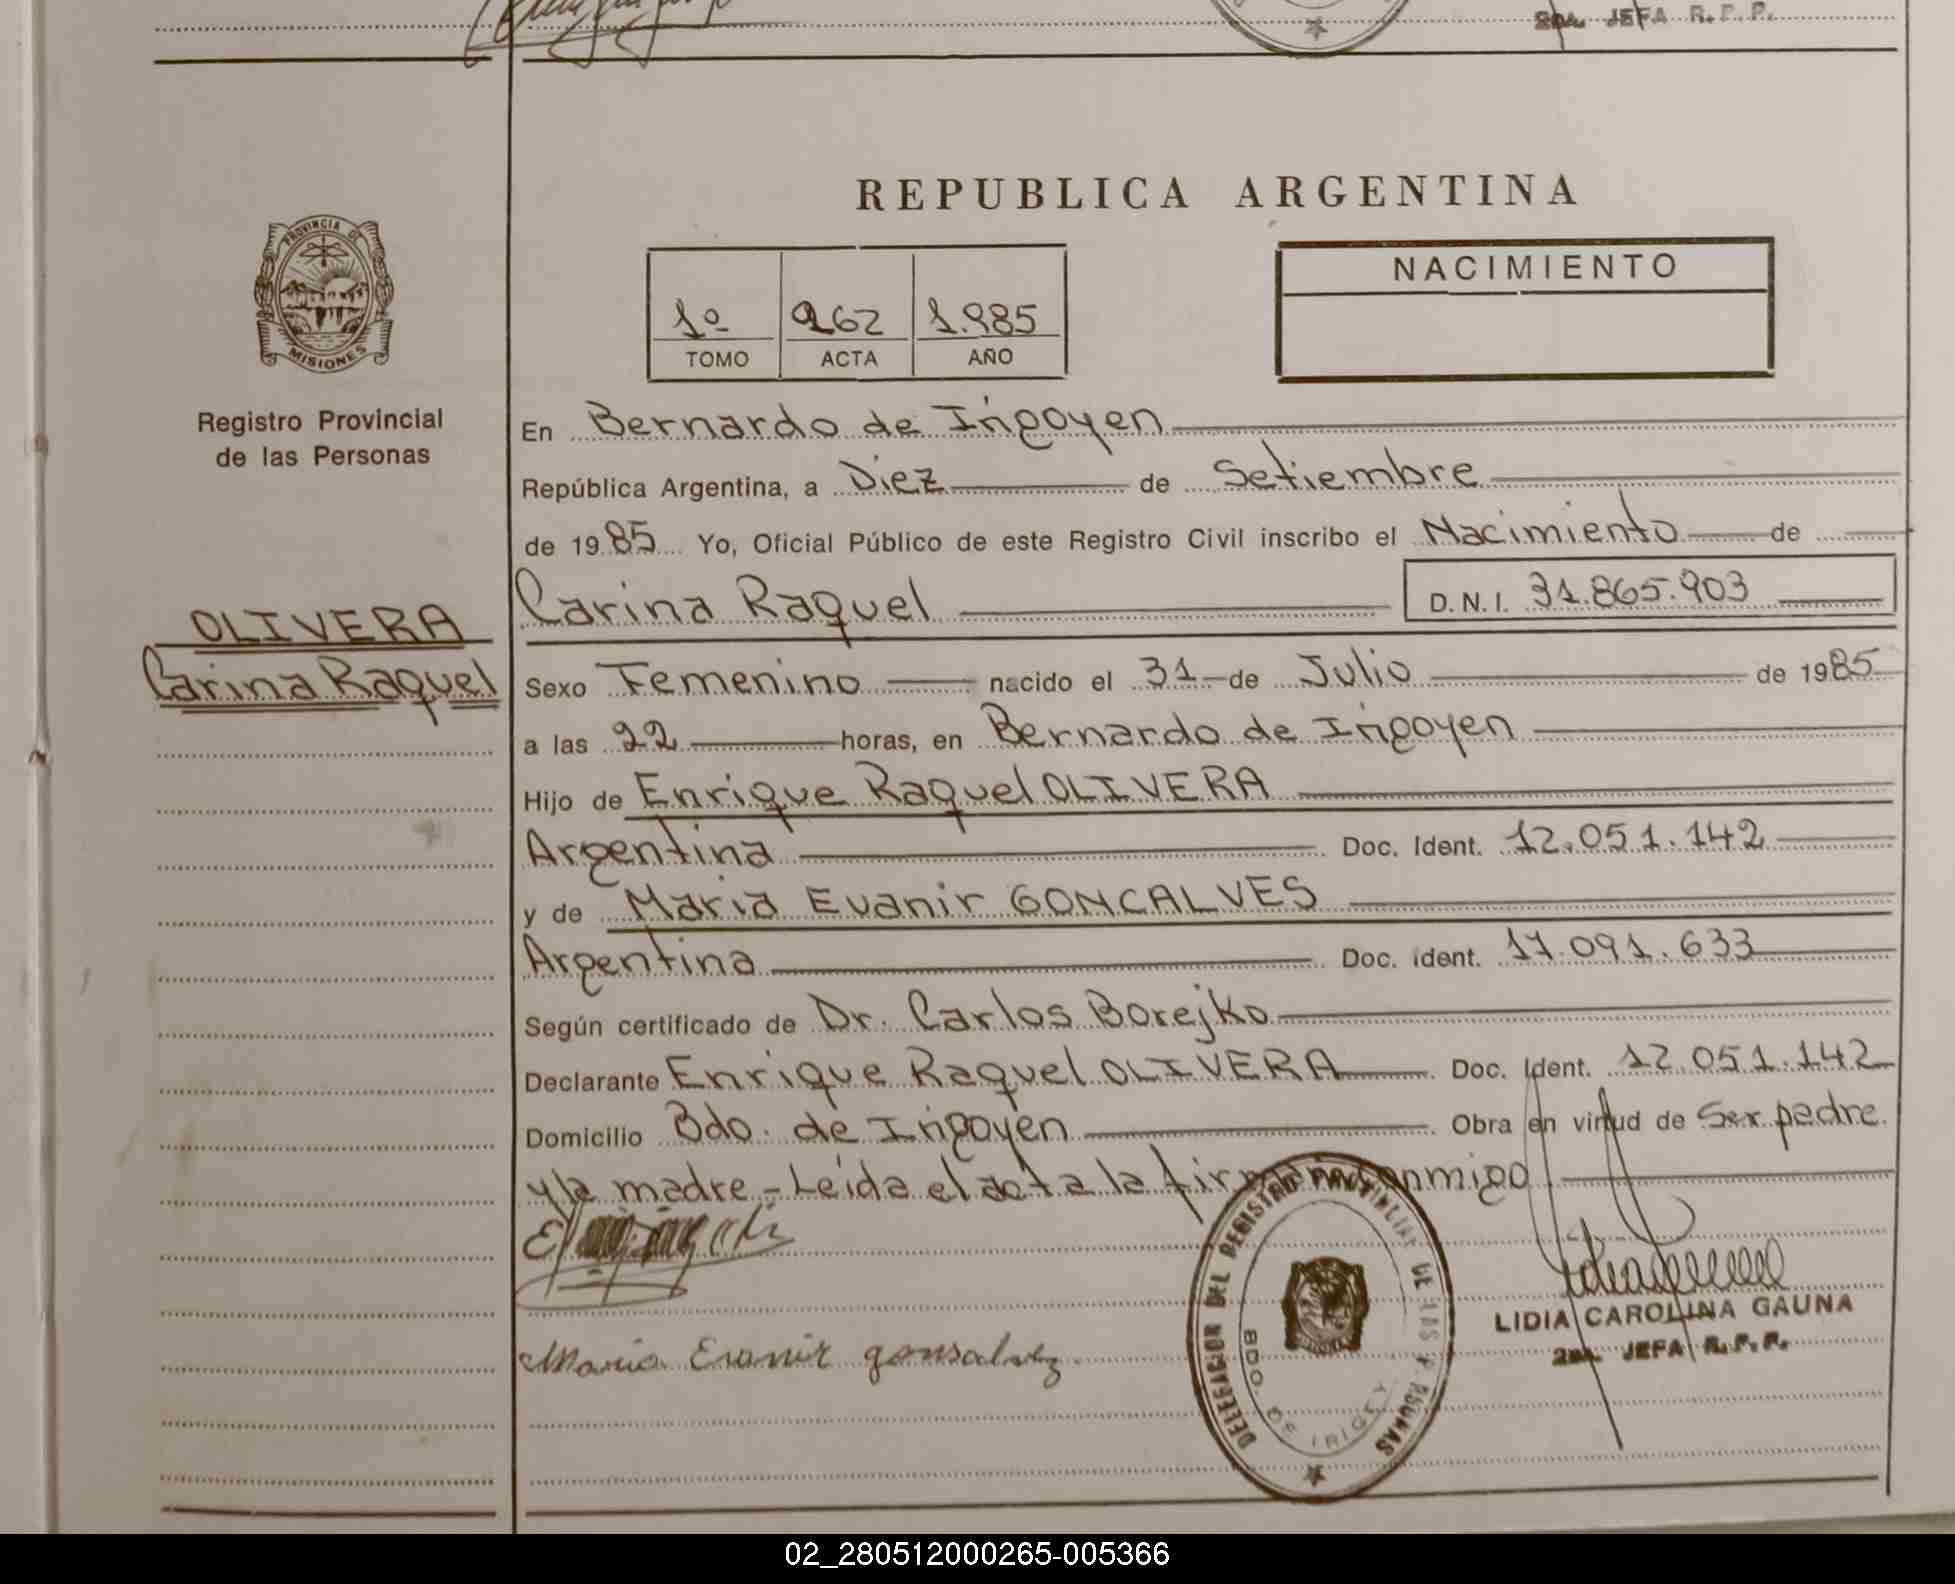 2da. JEFA R.P.P.
REPUBLICA ARGENTINA
PROVINCIA DE
MISIONES
Registro Provincial
de las Personas
1º 262 1.985
TOMO ACTA AÑO
NACIMIENTO
En Bernardo de Irigoyen
República Argentina, a Diez de Setiembre
de 1985 Yo, Oficial Público de este Registro Civil inscribo el Nacimiento de
Carina Raquel D.N.I. 31.865.903
OLIVERA
Carina Raquel
Sexo Femenino nacido el 31 de Julio de 1985
a las 22 horas, en Bernardo de Irigoyen
Hijo de Enrique Raquel OLIVERA
Argentina Doc. Ident. 12.051.142
y de Maria Evanir GONCALVES
Argentina Doc. ident. 17.091.633
Según certificado de Dr. Carlos Borejko
Declarante Enrique Raquel OLIVERA Doc. Ident. 12.051.142
Domicilio Bdo. de Irigoyen Obra en virtud de Ser padre
y la madre - Leída el acta la firman conmigo
Maria Evanir gonsalvez
DELEGACION DEL REGISTRO PROVINCIAL DE LAS PERSONAS
BDO. DE IRIGOYEN
LIDIA CAROLINA GAUNA
2da. JEFA R.P.P.
02_280512000265-005366